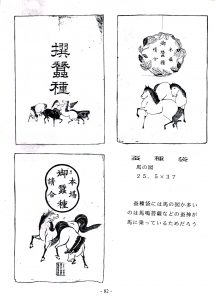 撰蚕種
本場
御蚕種
請合
蚕種袋
馬の図
25.5×37
蚕種袋には馬の図が多い
のは馬鳴菩薩などの蚕神が
馬に乗っているためだろう
本場
御蚕種
請合
- 82 -